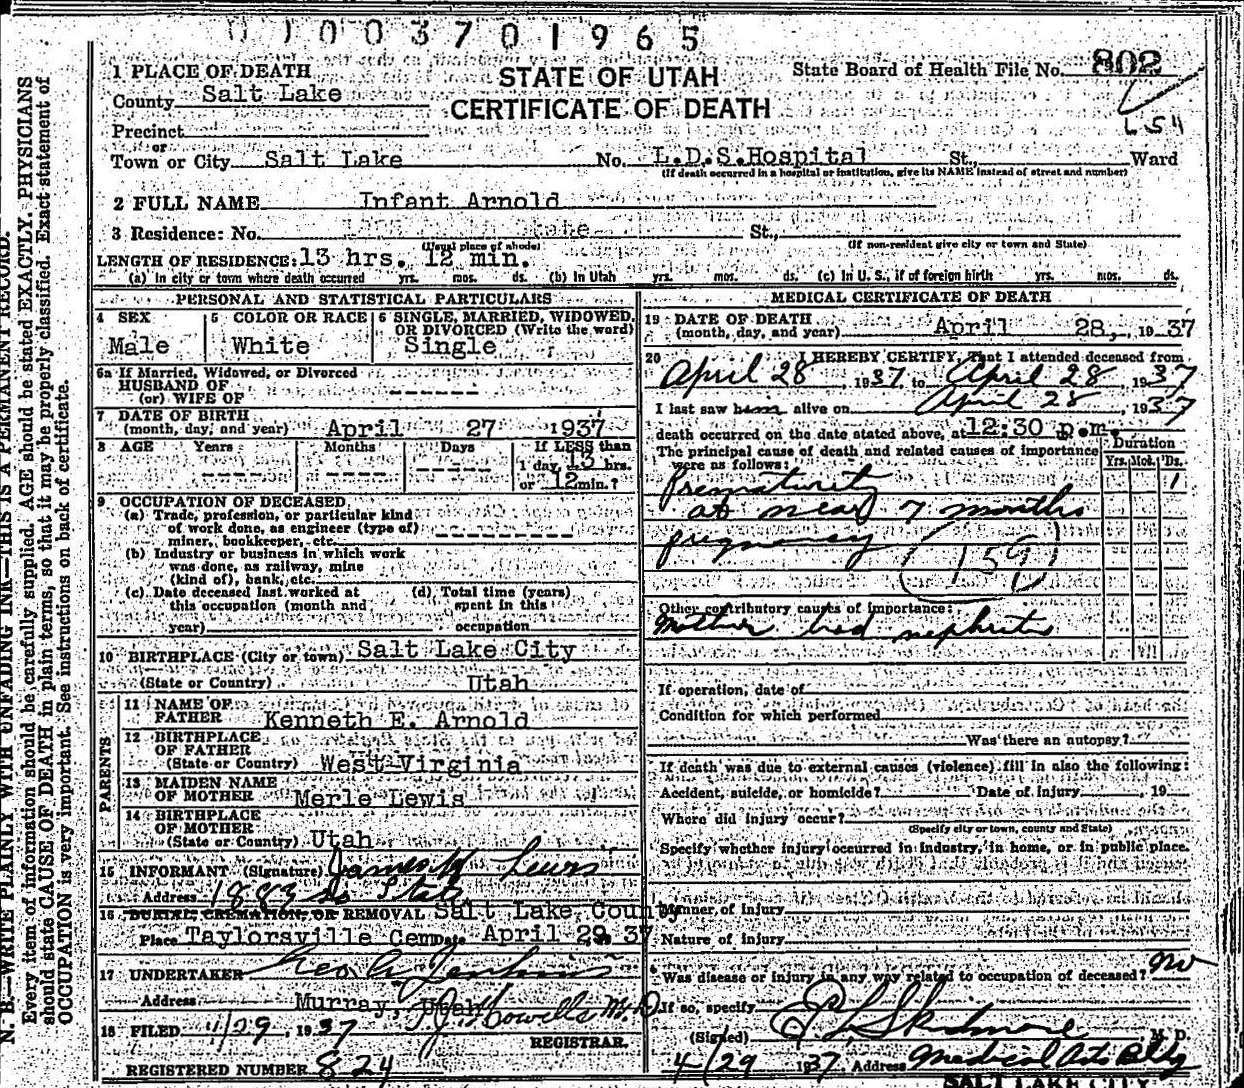 0 1 0 0 3 7 0 1 9 6 5
STATE OF UTAH
CERTIFICATE OF DEATH
State Board of Health File No. 802
1 PLACE OF DEATH
County Salt Lake
Precinct
or
Town or City Salt Lake No. L.D.S.Hospital St., Ward
(If death occurred in a hospital or institution, give its NAME instead of street and number)
2 FULL NAME Infant Arnold
3 Residence: No. St.,
(Usual place of abode) (If non-resident give city or town and State)
LENGTH OF RESIDENCE: 13 hrs. 12 min.
(a) In city or town where death occurred yrs. mos. ds. (b) In Utah yrs. mos. ds. (c) In U. S., if of foreign birth yrs. mos. ds.
PERSONAL AND STATISTICAL PARTICULARS
4 SEX
Male
5 COLOR OR RACE
White
6 SINGLE, MARRIED, WIDOWED, OR DIVORCED (Write the word)
Single
6a If Married, Widowed, or Divorced
HUSBAND OF
(or) WIFE OF
7 DATE OF BIRTH
(month, day, and year) April 27 1937
8 AGE Years Months Days If LESS than
1 day, 13 hrs.
or 12 min.?
9 OCCUPATION OF DECEASED
(a) Trade, profession, or particular kind
of work done, as engineer (type of)
miner, bookkeeper, etc.
(b) Industry or business in which work
was done, as railway, mine
(kind of), bank, etc.
(c) Date deceased last worked at (d) Total time (years)
this occupation (month and spent in this
year) occupation
10 BIRTHPLACE (City or town) Salt Lake City
(State or Country) Utah
PARENTS
11 NAME OF
FATHER Kenneth E. Arnold
12 BIRTHPLACE
OF FATHER
(State or Country) West Virginia
13 MAIDEN NAME
OF MOTHER Merle Lewis
14 BIRTHPLACE
OF MOTHER
(State or Country) Utah
15 INFORMANT (Signature) James H Lewis
Address 1883 So State
16 BURIAL, CREMATION, OR REMOVAL Salt Lake County
Place Taylorsville Cem Date April 29 37
17 UNDERTAKER Geo A Jenkins
Address Murray, Utah
18 FILED 4/29, 1937 T.J. Howells M.D.
REGISTRAR.
REGISTERED NUMBER 824
MEDICAL CERTIFICATE OF DEATH
19 DATE OF DEATH
(month, day, and year) April 28, 1937
20 I HEREBY CERTIFY, That I attended deceased from
April 28, 1937 to April 28, 1937
I last saw him alive on April 28, 1937
death occurred on the date stated above, at 12:30 p.m.
The principal cause of death and related causes of importance
were as follows:
Duration
Yrs. Mos. Ds.
Prematurity 1
at near 7 months
pregnancy
159
Other contributory causes of importance:
Mother had nephritis
If operation, date of
Condition for which performed
Was there an autopsy?
If death was due to external causes (violence) fill in also the following:
Accident, suicide, or homicide? Date of injury , 19
Where did injury occur?
(Specify city or town, county and State)
Specify whether injury occurred in industry, in home, or in public place.
Manner of injury
Nature of injury
Was disease or injury in any way related to occupation of deceased? no
If so, specify
(Signed) Skidmore M. D.
4/29 1937 Address Medical Arts Bldg
SALT LAKE CITY
N. B.—WRITE PLAINLY WITH UNFADING INK—THIS IS A PERMANENT RECORD.
Every item of information should be carefully supplied. AGE should be stated EXACTLY. PHYSICIANS
should state CAUSE OF DEATH in plain terms, so that it may be properly classified. Exact statement of
OCCUPATION is very important. See instructions on back of certificate.